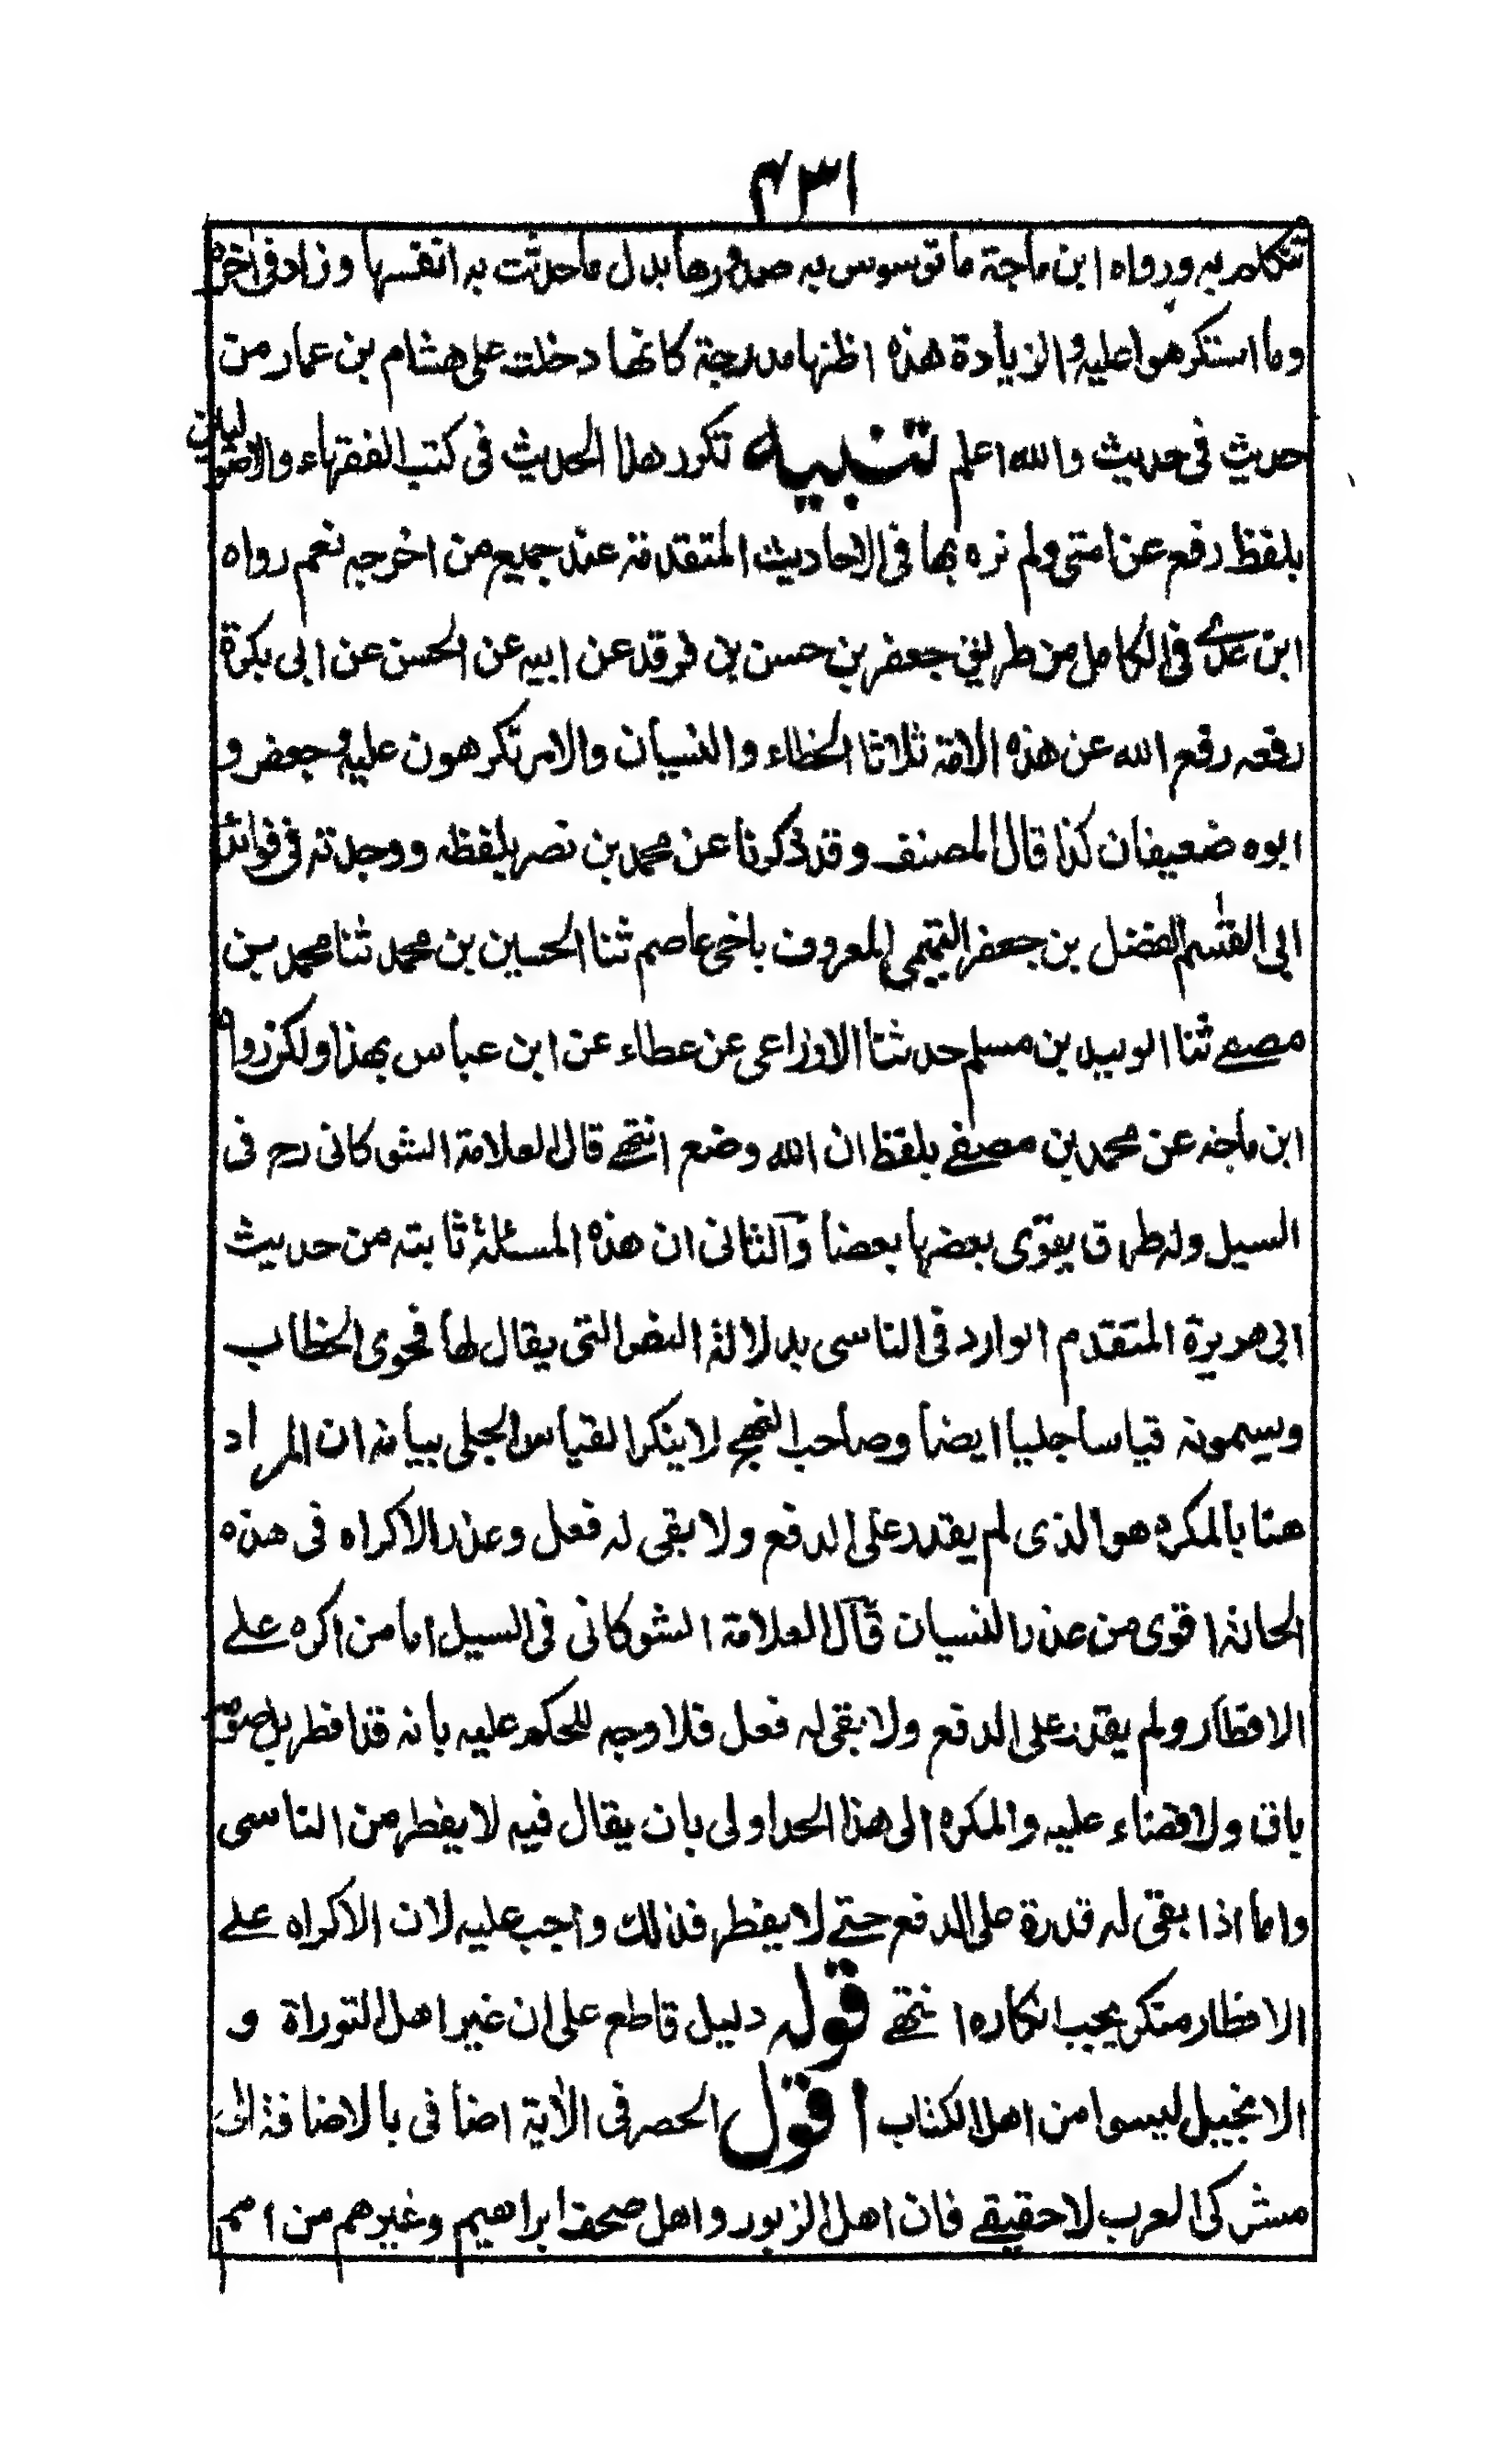 ۴۳۱
تتكلم به ورواه ابن ماجة ما توسوس به صدورها بدل ما حدثت به انفسها وزاد فى اخره
وما استكرهوا عليه والزيادة هذه اظنها مدرجة كانها دخلت على هشام بن عمار من
حديث فى حديث والله اعلم تنبيه تكرر هذا الحديث فى كتب الفقهاء والاصوليين
بلفظ رفع عن امتى ولم نره بها فى الاحاديث المتقدمة عند جميع من اخرجه نعم رواه
ابن عدے فى الكامل من طريق جعفر بن حسن بن فرقد عن ابيه عن الحسن عن ابى بكرة
رفعه رفع الله عن هذه الامة ثلاثا الخطاء والنسيان والامر تكرهون عليه وجعفر و
ابوه ضعيفان كذا قال المصنف وقد ذكرنا عن محمد بن نصر بلفظه ووجدته فى فوائد
ابى القسم الفضل بن جعفر التميمى المعروف باخى عاصم ثنا الحسين بن محمد ثنا محمد بن
مصفے ثنا الوليد بن مسلم حدثنا الاوزاعى عن عطاء عن ابن عباس بهذا ولكن رواه
ابن ماجه عن محمد بن مصفے بلفظ ان الله وضع انتهے قال العلامة الشوكانى رح فى
السيل وله طرق يقوّى بعضها بعضا وآلثانى ان هذه المسئلة ثابتة من حديث
ابى هريرة المتقدم الوارد فى الناسى بدلالة النص التى يقال لها فحوى الخطاب
ويسمونه قياسا جليا ايضا وصاحب النهج لا ينكر القياس الجلى بيانه ان المراد
هنا بالمكره هو الذى لم يقدر على الدفع ولا بقى له فعل وعذر الاكراه فى هذه
الحالة اقوى من عذر النسيان قآل العلامة الشوكانى فى السيل اما من اكره علے
الافطار ولم يقدر على الدفع ولا بقى له فعل فلا وجه للحكم عليه بانه قد افطر بل صومه
باق ولا قضاء عليه والمكره الى هذا الحد اولى بان يقال فيه لا يفطر من الناسى
واما اذا بقى له قدرة على الدفع حتے لا يفطر فذلك واجب عليه لان الاكراه علے
الافطار منكر يجب انكاره انتهے قوله دليل قاطع على ان غير اهل التوراة و
الانجيل ليسوا من اهل الكتاب اقول الحصر فى الآية اضافى بالاضافة الى
مشركى العرب لا حقيقے فان اهل الزبور واهل صحف ابراهيم وغيرهم من امم